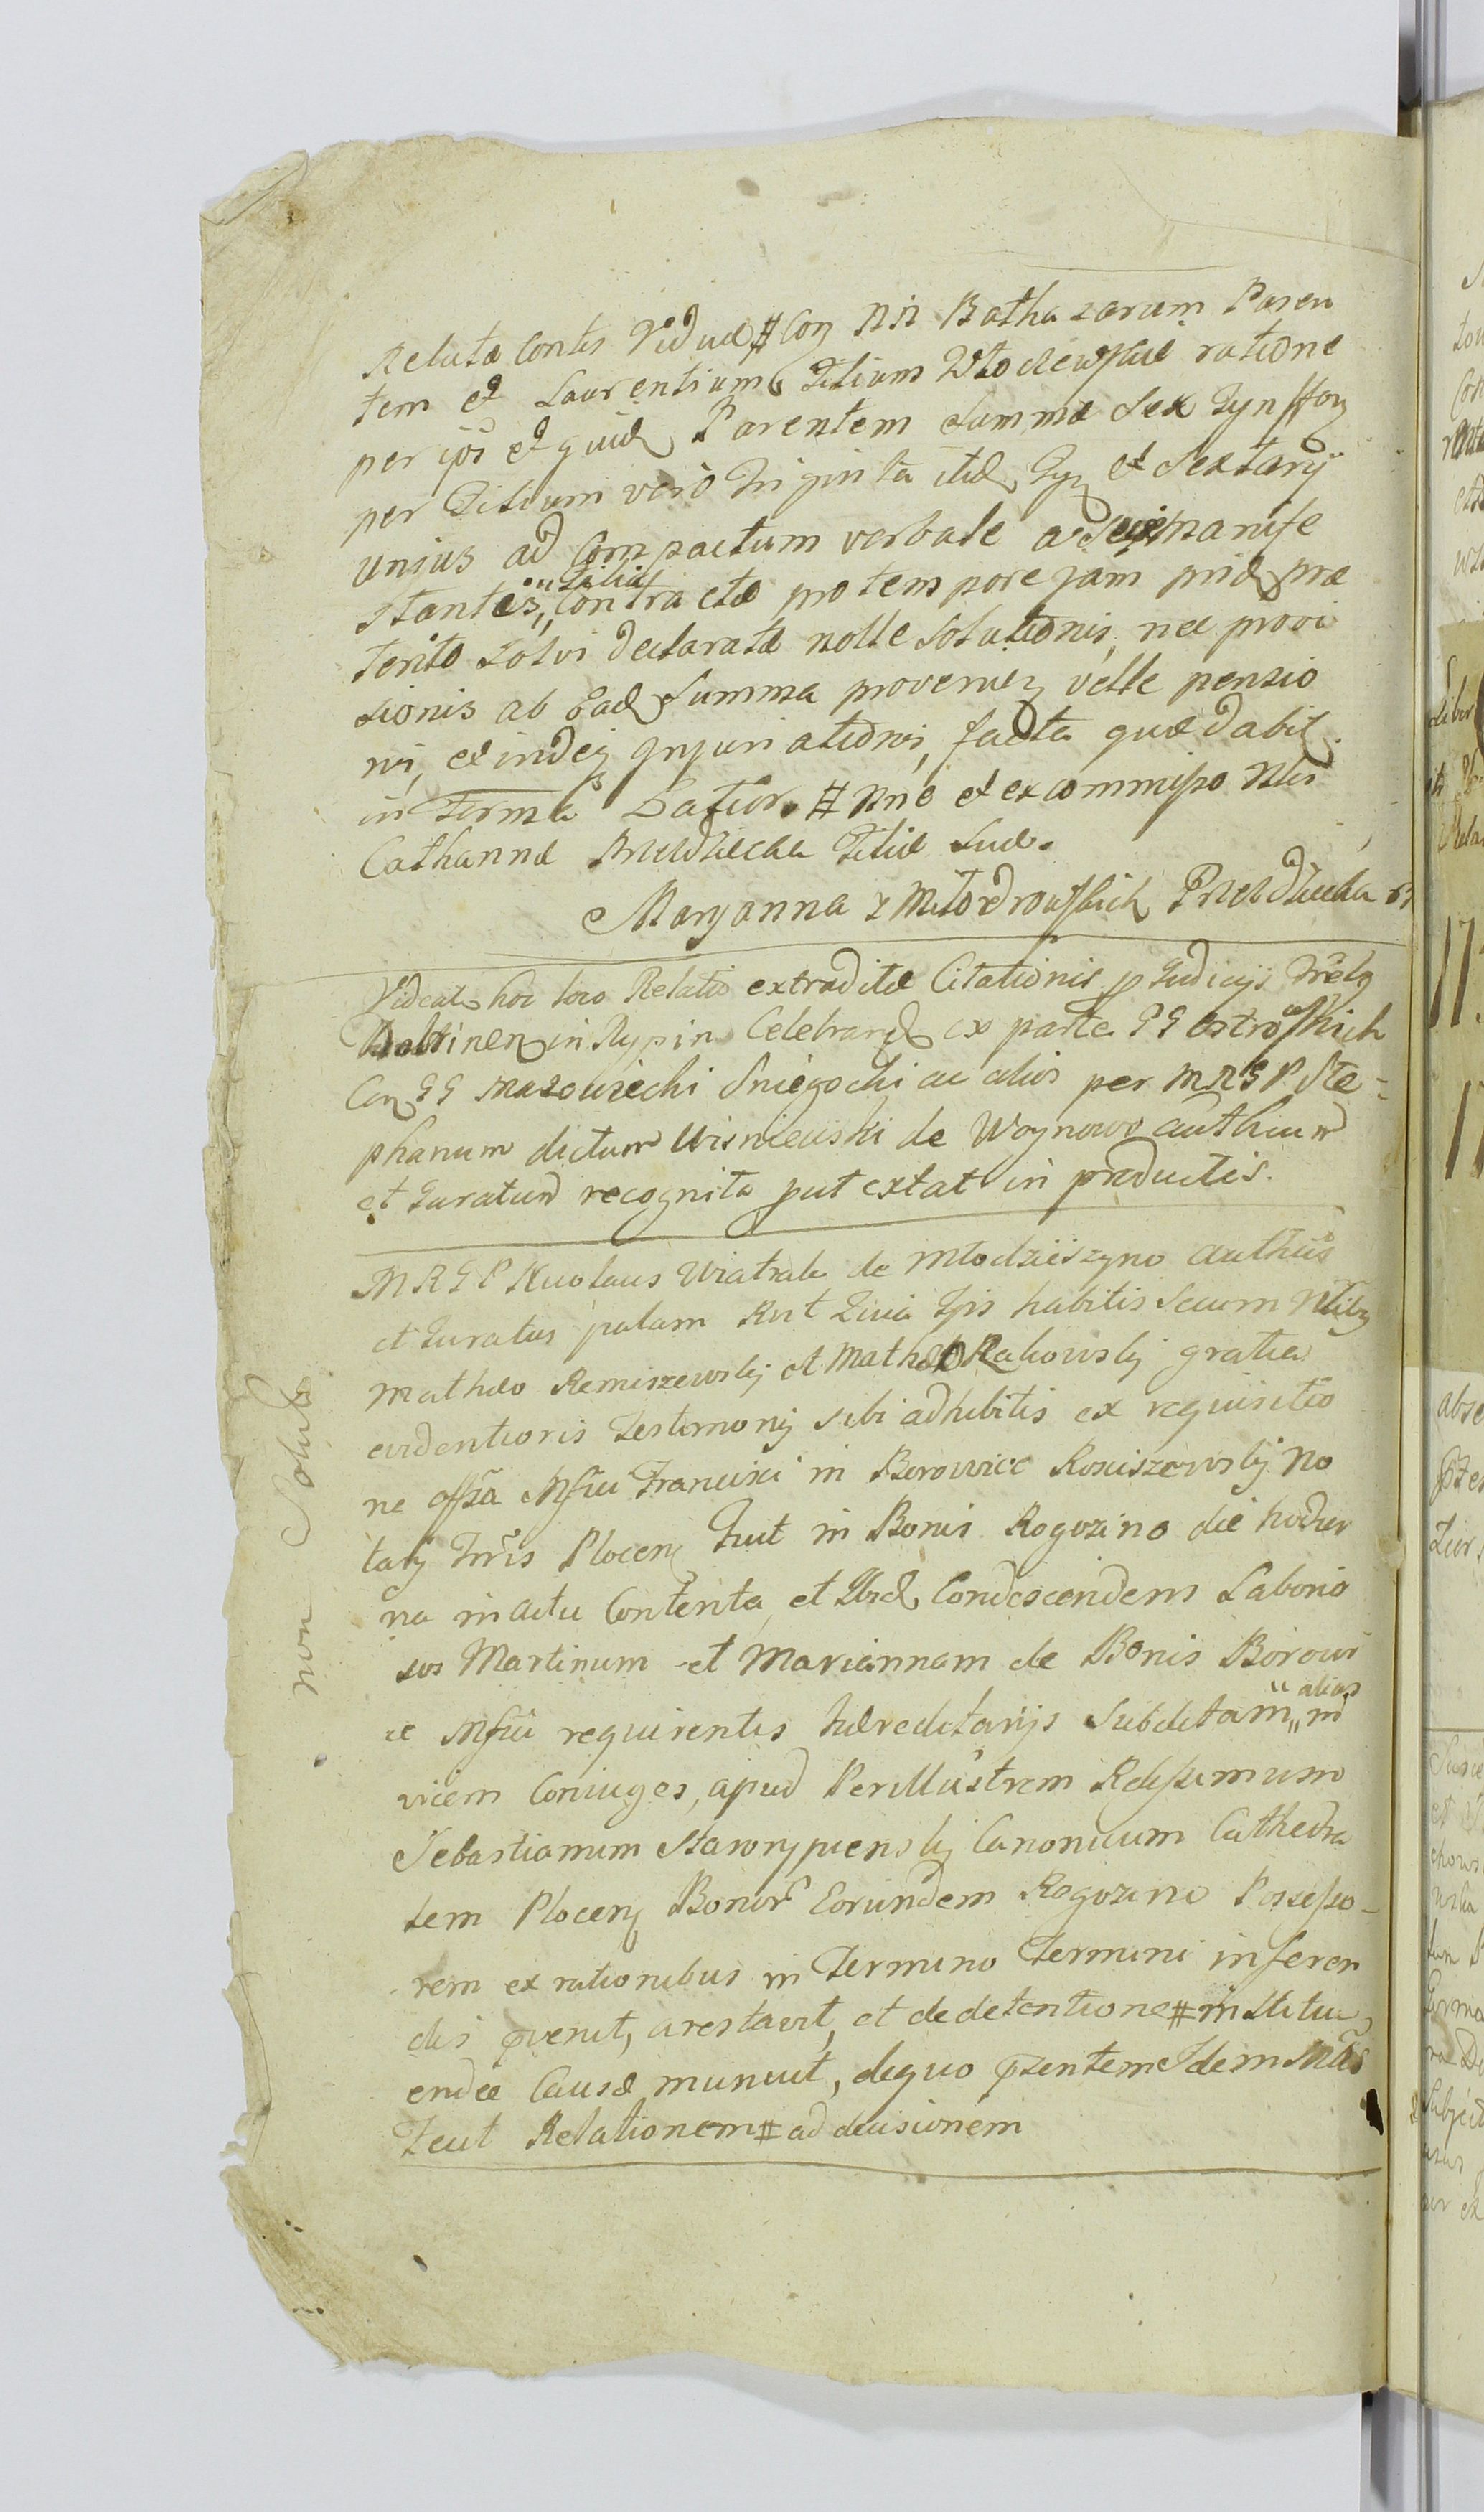 Relictæ Contis Viduæ # Con NN Bathazarum Paren
tem et Laurentium Filium Włockewskie ratione
per ipõ et quid Parentem summæ sex Tynffon
per Filium vero Triginta itid Tyn et Sextarij
unius ad Compactum verbale a manife
stantis, Filia Contractæ pro tempore jam prid præ
terito solvi declaratæ nolle solutionis, nec provi
sionis ab Ead Summa proveniez velle pensio
ni, ex indeq Injuriationis, facta quæ dabit
in Termo Latior. # Nne et ex commisso Nlis
Catharinæ Filiæ suæ.
Maryanna z
Videat hoc loco Relatio extraditæ Citationis p Judicijs Trēlz
Dobrinen in Rypin Celebrand ex parte GG Ostrowskich
Con GG Mazowiecki Sniegocki ac alios per MRGP Ste-
phanum dictum Wisniewski de Woynowo authicum
et Juratum recognita put extat in productis.
MRGP Nicolaus Wiatrak de Młodzieszyno authūs
et Juratus palam Rvt Quia Ipis habitis Secum Nlibz
Matheo Remiszewskij et Matheo Rakowskij gratia
evidentioris Testimonij sibi adhibitis ex requisitio
ne offsa Mfici Francisci in Borowice Rosciszewskij No
tarij Trris Plocen fuit in Bonis Rogozino die hodier
na in actu Contenta, et Ibid Condescendens Laborio
sos Martinum et Mariannam de Bonis Borowi
ce Mfici requirentis hæreditarijs Subditam alias in
vicem Coniuges, apud Perillustrem Rdissimum
Sebastianum Starorypienskij Canonicum Cathedra
lem Plocen Bonorr Eorundem Rogozino Possesso-
rem ex rationibus in Termino Termini inferen
dis pvenit, arestavit, et de detentione # institu
endæ Causæ muniit, de quo pzentem Idem Mlis
fecit Relationem # ad decisionem
non Solut